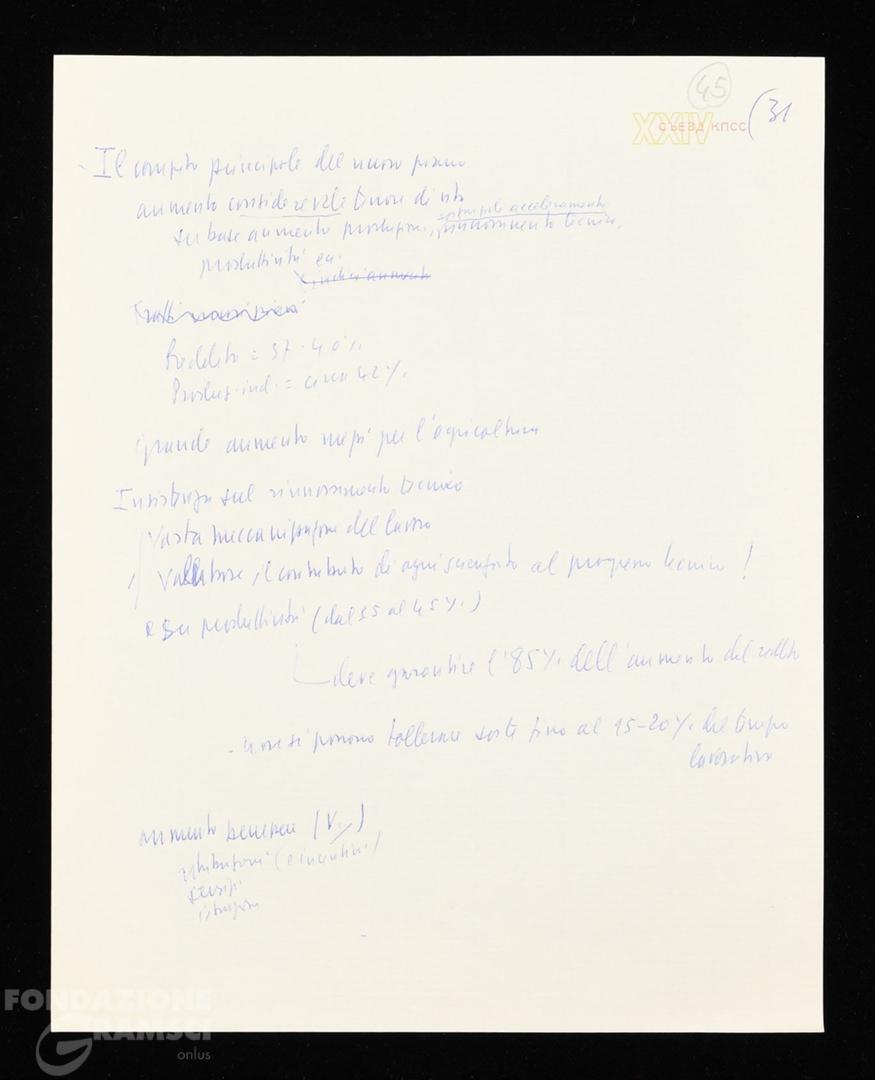 45
(31
XXIV СЪЕЗД КПСС
- Il compito principale del nuovo piano
aumento considerevole tenore di vita
su base aumento produzione, rinnovamento tecnico,
accelleramento
produttività ecc.
Reddito = 37-40%
Produz. ind. = circa 42%
grande aumento mezzi per l'agricoltura
Insistenza sul rinnovamento tecnico
Vasta meccanizzazione del lavoro
il contributo di ogni scienziato al progresso tecnico!
e su produttività (dal 35 al 45%)
deve garantire l'85% dell'aumento del reddito
- non si possono tollerare soste fino al 15-20% del tempo
lavorativo
aumento benessere (V.)
retribuzioni (e incentivi)
servizi
istruzione
FONDAZIONE
GRAMSCI
onlus